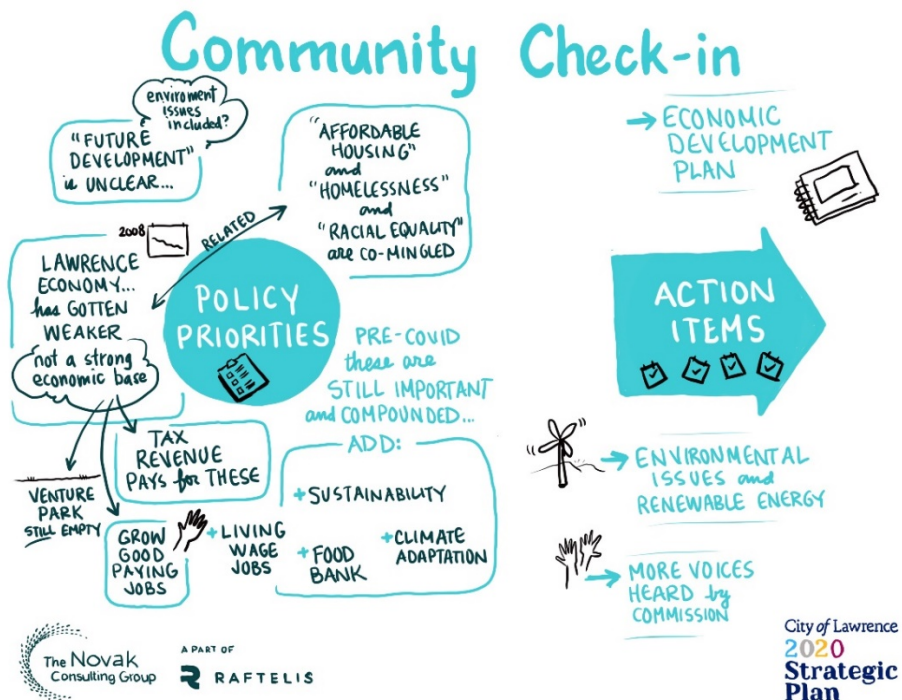 Community Check-in
enviroment
issues
included?
"FUTURE
DEVELOPMENT"
is UNCLEAR...
"AFFORDABLE
HOUSING"
and
"HOMELESSNESS"
and
"RACIAL EQUALITY"
are CO-MINGLED
2008
RELATED
LAWRENCE
ECONOMY...
has GOTTEN
WEAKER
not a strong
economic base
POLICY
PRIORITIES
PRE-COVID
these are
STILL IMPORTANT
and COMPOUNDED...
ADD:
+ SUSTAINABILITY
+ FOOD
BANK
+ CLIMATE
ADAPTATION
TAX
REVENUE
PAYS for THESE
VENTURE
PARK
STILL EMPTY
GROW
GOOD
PAYING
JOBS
+ LIVING
WAGE
JOBS
→ ECONOMIC
DEVELOPMENT
PLAN
ACTION
ITEMS
→ ENVIRONMENTAL
ISSUES and
RENEWABLE ENERGY
→ MORE VOICES
HEARD by
COMMISSION
The Novak
Consulting Group
A PART OF
RAFTELIS
City of Lawrence
2020
Strategic
Plan